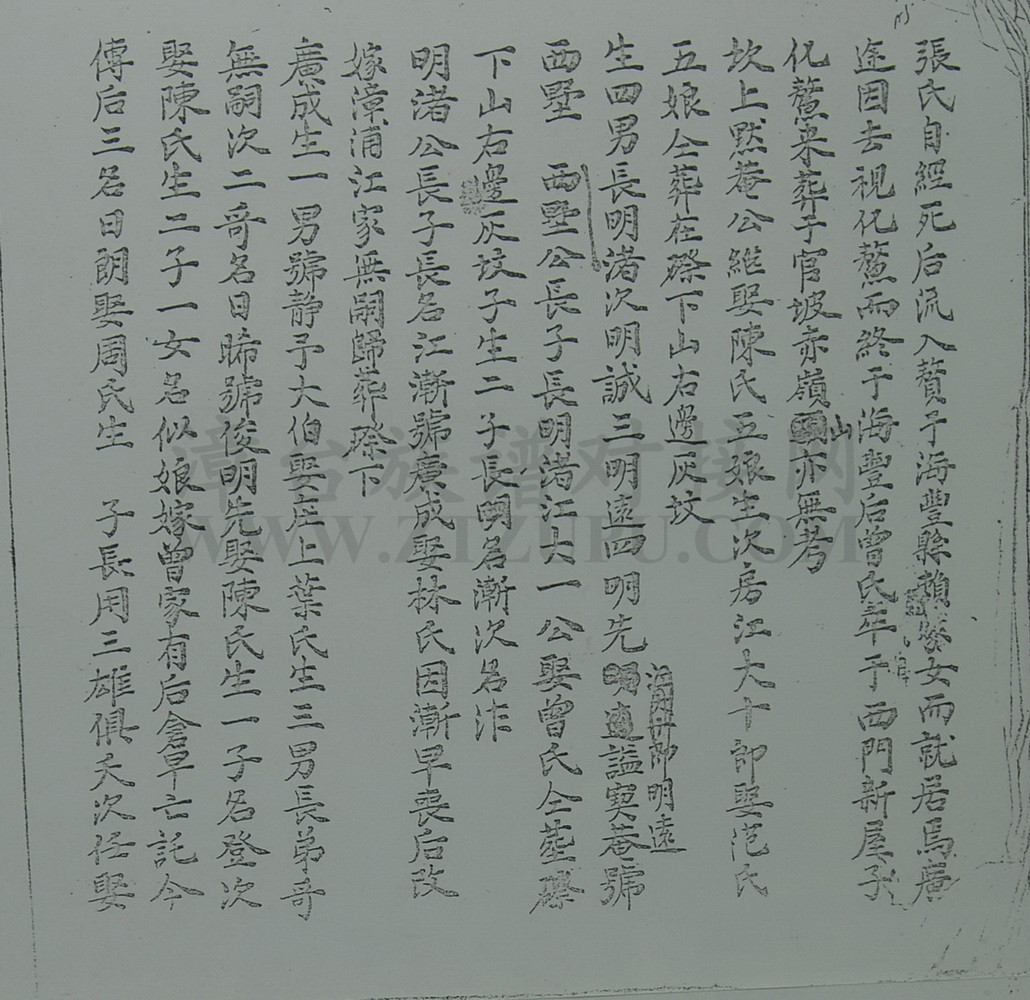 張氏自經死后流入贅于海豐縣賴家女而就居焉廣
途因去視化鰲而終于海豐后曾氏卒于西門新屋子
化鰲来葬于官坡赤嶺山亦無考
坎上黙菴公継娶陳氏五娘生次房江大十郎娶范氏
五娘仝葬在際下山右邊灰坟
生四男長明渚次明誠三明遠四明先明遠謚寔菴號
明遠
西墅 西墅公長子長明渚江大一公娶曾氏仝塟際
下山右邊灰坟子生二子長明名漸次名泎
明渚公長子長名江漸號廣成娶林氏因漸早丧后改
嫁漳浦江家無嗣歸葬際下
廣成生一男號静予大伯娶庄上葉氏生三男長弟哥
無嗣次二哥名日晞號俊明先娶陳氏生一子名登次
娶陳氏生二子一女名似娘嫁曾家有后會早亡託今
傳后三名日朗娶周氏生 子長用三雄俱夭次任娶
漳台族谱对接网
WWW.ZTZUPU.COM